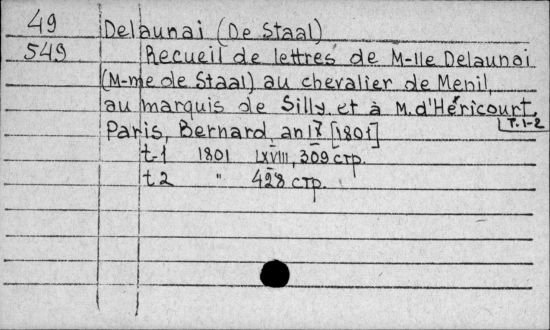 49 Delaunai (De Staal)
549 Recueil de lettres de M-lle Delaunai
(M-me de Staal) au chevalier de Menil,
au marquis de Silly, et à M. d'Héricourt.
T. 1-2
Paris, Bernard, an IX [1801]
t-1 1801 LXVIII, 309 стр.
t 2 " 428 стр.